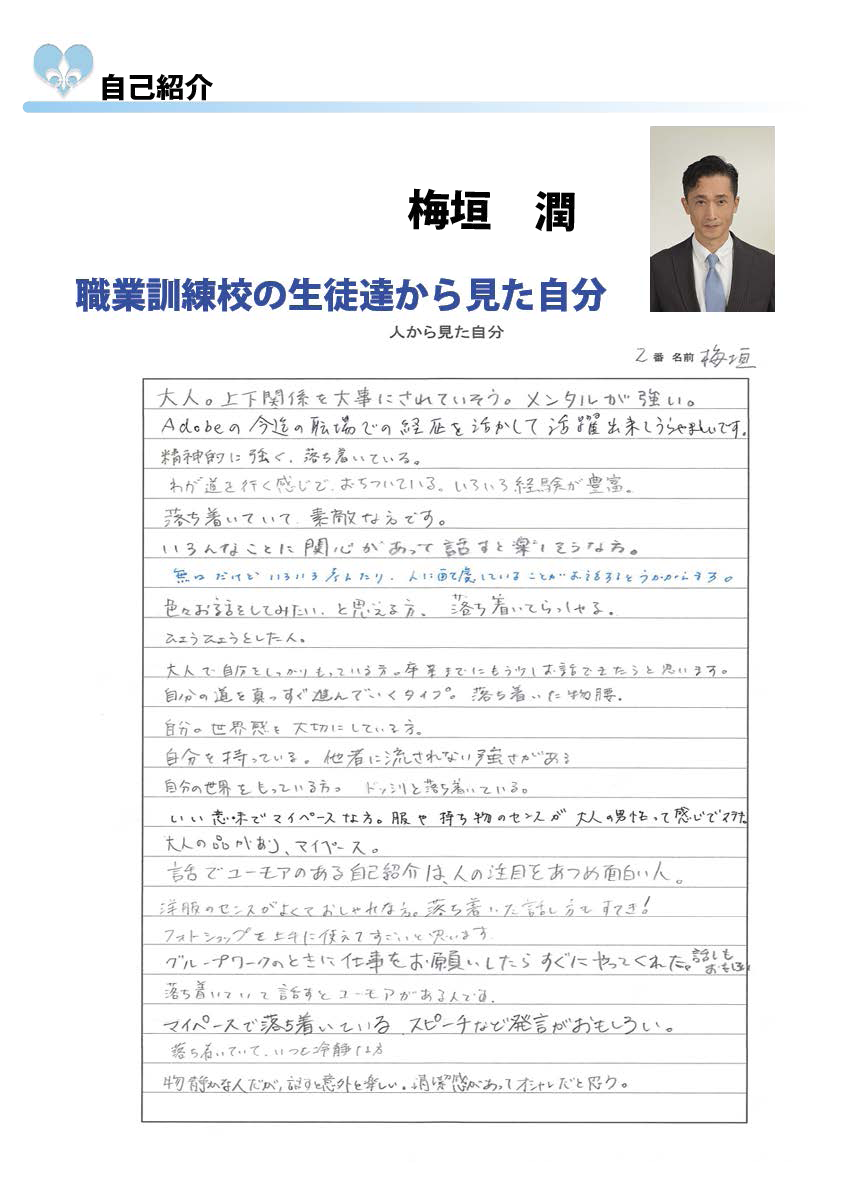 自己紹介
梅垣 潤
職業訓練校の生徒達から見た自分
人から見た自分
2番 名前 梅垣
大人。上下関係を大事にされていそう。メンタルが強い。
Adobeの今迄の職場での経歴を活かして活躍出来しうらやましいです。
精神的に強く、落ち着いている。
わが道を行く感じで、おちついている。いろいろ経験が豊富。
落ち着いていて、素敵な方です。
いろんなことに関心があって話すと楽しそうな方。
無口だけど いろいろ考えたり、人に配慮していることがお話するとうかがえます。
色々お話をしてみたい、と思える方。 落ち着いてらっしゃる。
ひょうひょうとした人。
大人で自分をしっかりもっている方。卒業までにもう少しお話できたらと思います。
自分の道を真っすぐ進んでいくタイプ。落ち着いた物腰。
自分の世界感を大切にしている方。
自分を持っている。他者に流されない強さがある
自分の世界をもっている方。 ドッシリと落ち着いている。
いい意味でマイペースな方。服や持ち物のセンスが大人の男性って感じでステキ
大人の品があり、マイペース。
話でユーモアのある自己紹介は、人の注目をあつめ面白い人。
洋服のセンスがよくておしゃれな方。落ち着いた話し方ですてき!
フォトショップを上手に使えてすごいと思います
グループワークのときに仕事をお願いしたらすぐにやってくれた。話しもおもしろい
落ち着いていて話すとユーモアがある人です。
マイペースで落ち着いている スピーチなど発言がおもしろい。
落ち着いていて、いつも冷静な方
物静かな人だが、話すと意外と楽しい。清潔感があってオシャレだと思う。